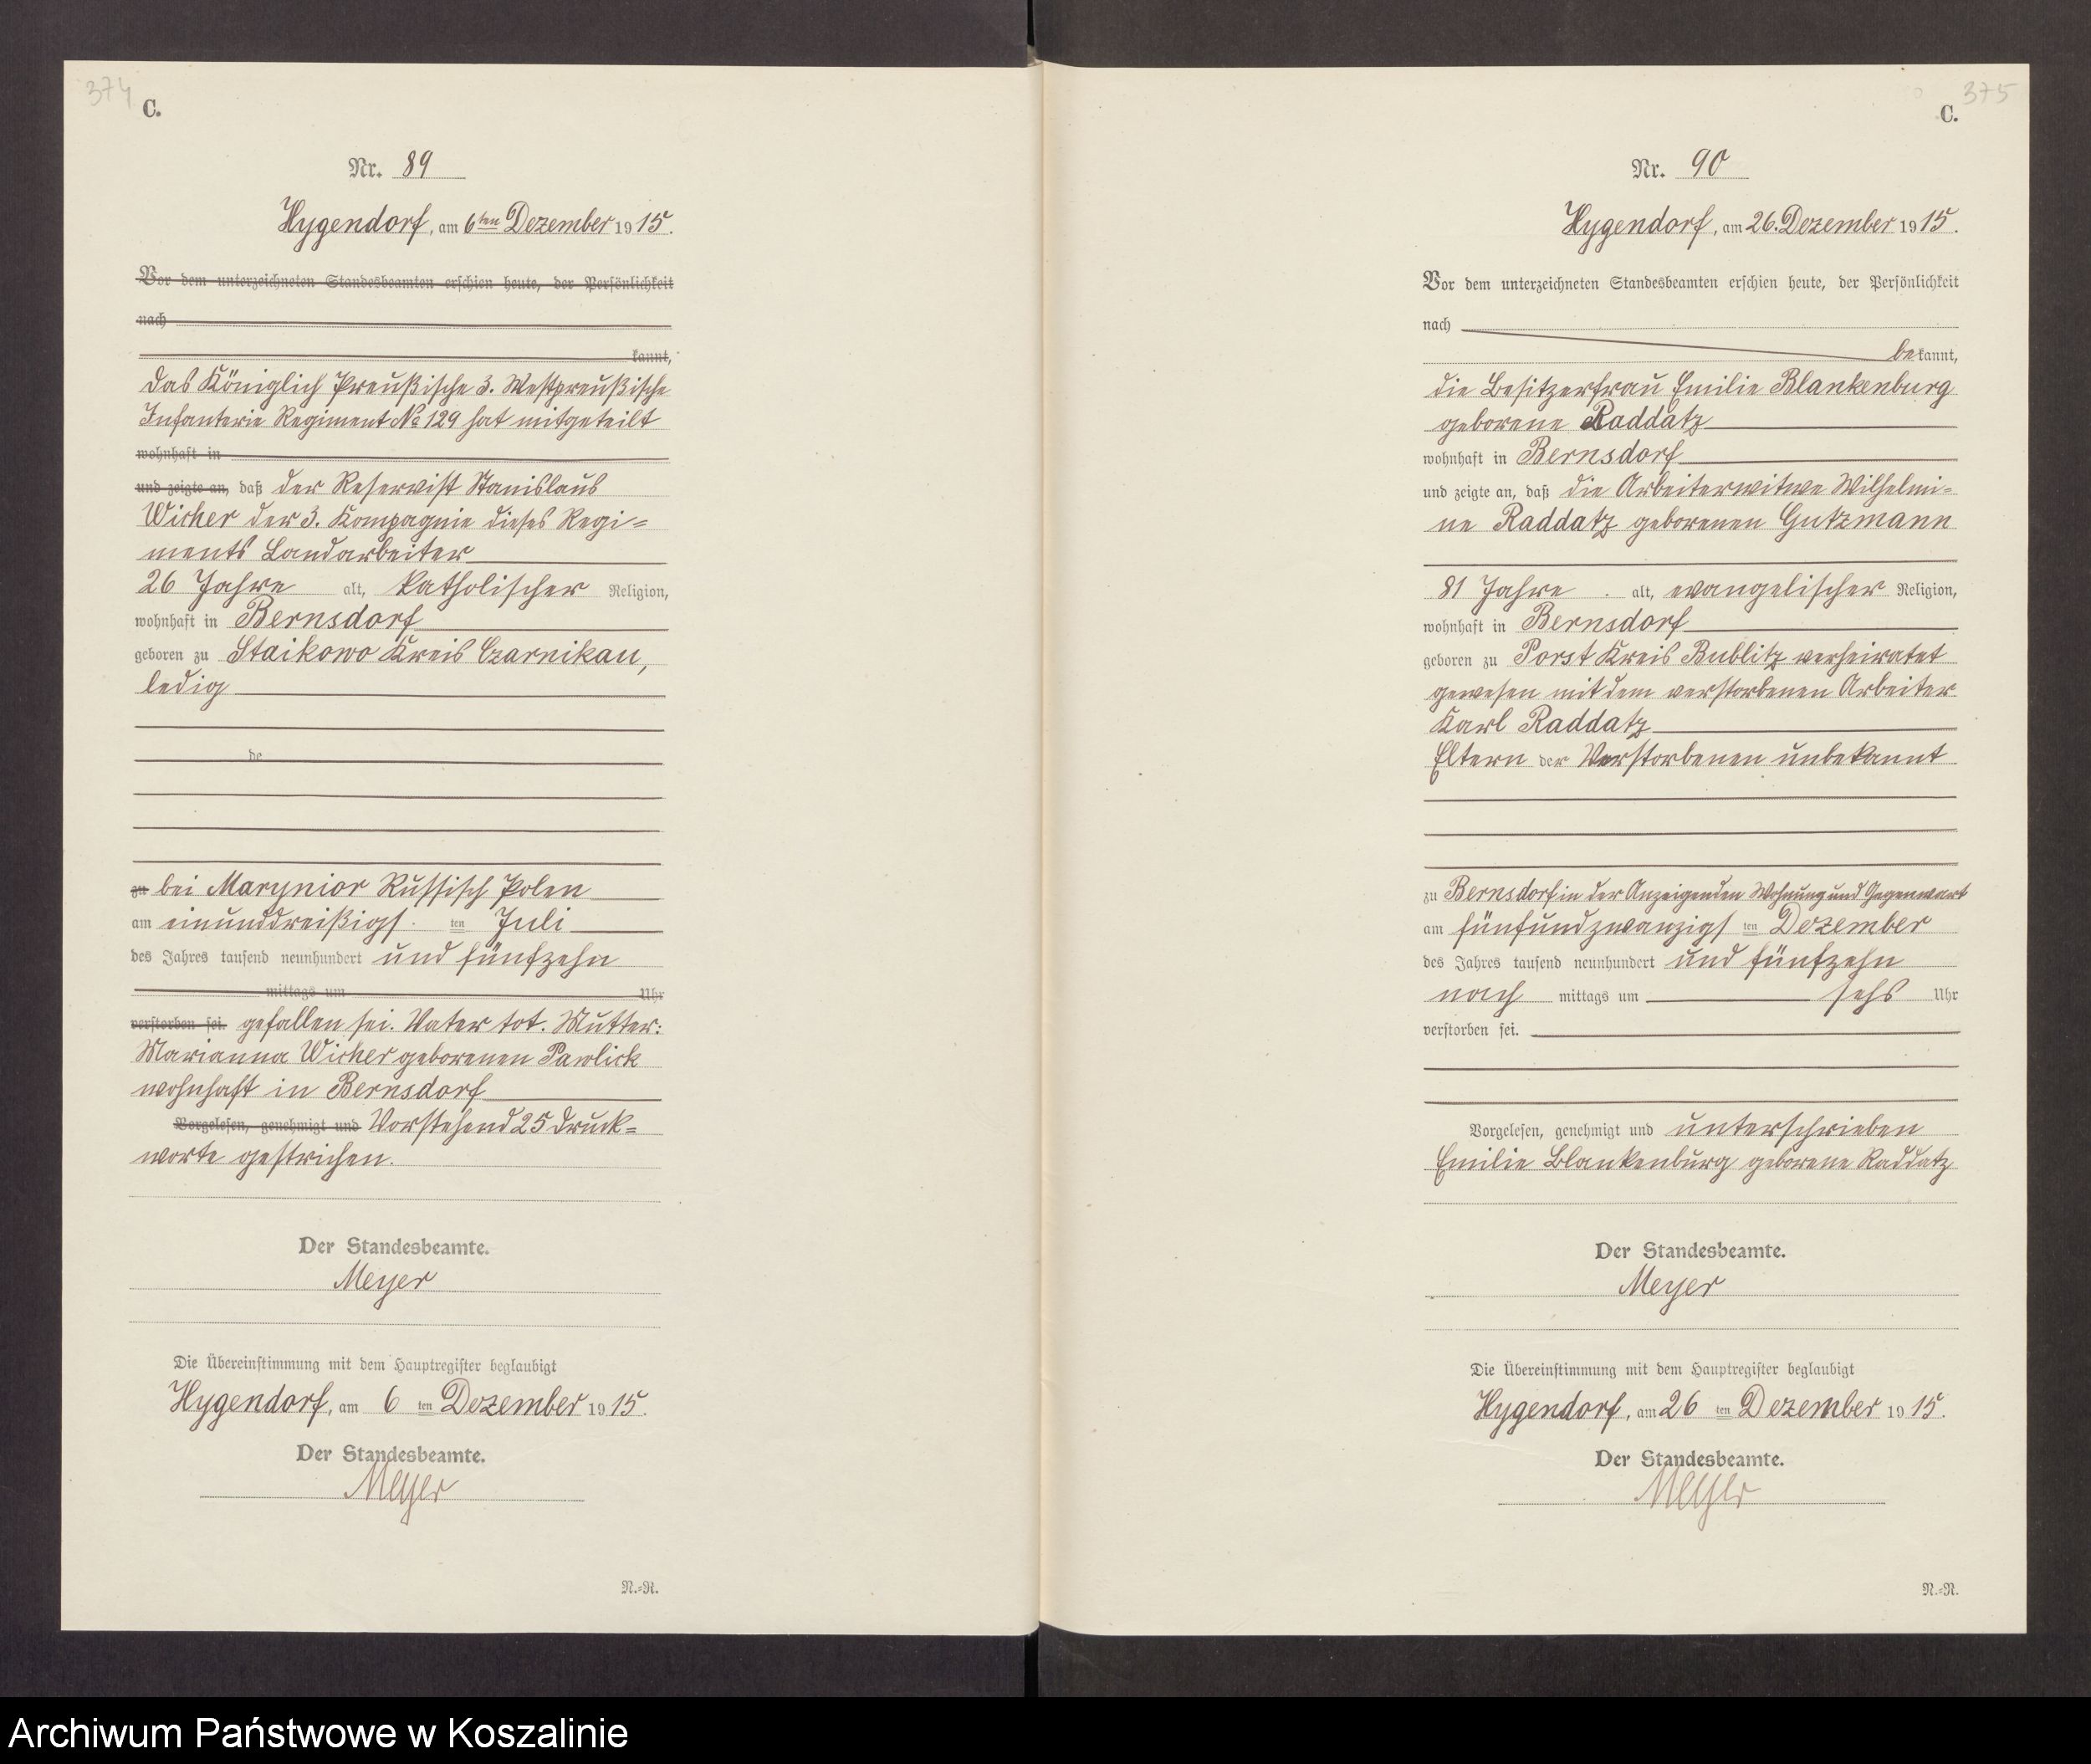 374
C.
Nr. 89
Hygendorf, am 6ten Dezember 1915.
Vor dem unterzeichneten Standesbeamten erschien heute, der Persönlichkeit
nach
kannt,
das Königlich Preußische 3. Westpreußische
Infanterie Regiment No 129 hat mitgeteilt
wohnhaft in
und zeigte an, daß der Reservist Stanislaus
Wicher der 3. Kompagnie dieses Regi=
ments Landarbeiter
26 Jahre alt, katholischer Religion,
wohnhaft in Bernsdorf
geboren zu Staikowo Kreis Czarnikau,
ledig
de
zu bei Marynior Russisch Polen
am einunddreißigs ten Juli
des Jahres tausend neunhundert und fünfzehn
mittags um Uhr
verstorben sei. gefallen sei. Vater tot. Mutter:
Marianna Wicher geborenen Pawlick
wohnhaft in Bernsdorf
Vorgelesen, genehmigt und Vorstehend 25 Druck=
worte gestrichen.
Der Standesbeamte.
Meyer
Die Übereinstimmung mit dem Hauptregister beglaubigt
Hygendorf, am 6 ten Dezember 1915.
Der Standesbeamte.
Meyer
N.=R.
375
C.
Nr. 90
Hygendorf, am 26. Dezember 1915.
Vor dem unterzeichneten Standesbeamten erschien heute, der Persönlichkeit
nach
bekannt,
die Besitzerfrau Emilie Blankenburg
geborene Raddatz
wohnhaft in Bernsdorf
und zeigte an, daß die Arbeiterwitwe Wilhelmi=
ne Raddatz geborenen Gutzmann
81 Jahre alt, evangelischer Religion,
wohnhaft in Bernsdorf
geboren zu Porst Kreis Bublitz verheiratet
gewesen mit dem verstorbenen Arbeiter
Karl Raddatz
Eltern der Verstorbenen unbekannt
zu Bernsdorf in der Anzeigenden Wohnung und Gegenwart
am fünfundzwanzigs ten Dezember
des Jahres tausend neunhundert und fünfzehn
nach mittags um sechs Uhr
verstorben sei.
Vorgelesen, genehmigt und unterschrieben
Emilie Blankenburg geborene Raddatz
Der Standesbeamte.
Meyer
Die Übereinstimmung mit dem Hauptregister beglaubigt
Hygendorf, am 26 ten Dezember 1915.
Der Standesbeamte.
Meyer
N.=R.
Archiwum Państwowe w Koszalinie